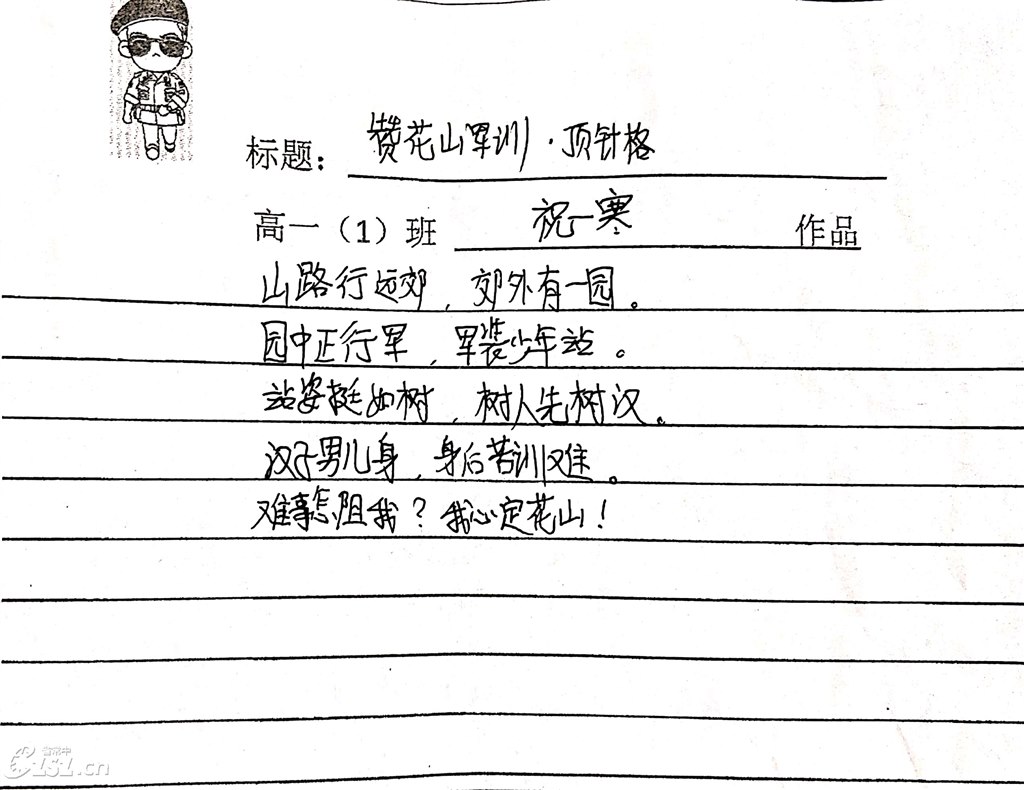 标题：赞花山军训·顶针格
高一（1）班 祝一寒 作品
山路行远郊，郊外有一园。
园中正行军，军装少年站。
站姿挺如树，树人先树汉。
汉子男儿身，身后苦训难。
难事怎阻我？我心定花山！
101.cn